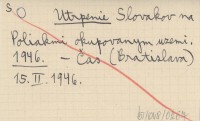 S
Utrpenie Slovákov na
Poliakmi okupovanym uzemi.
1946. – Čas (Bratislava)
15. II. 1946.